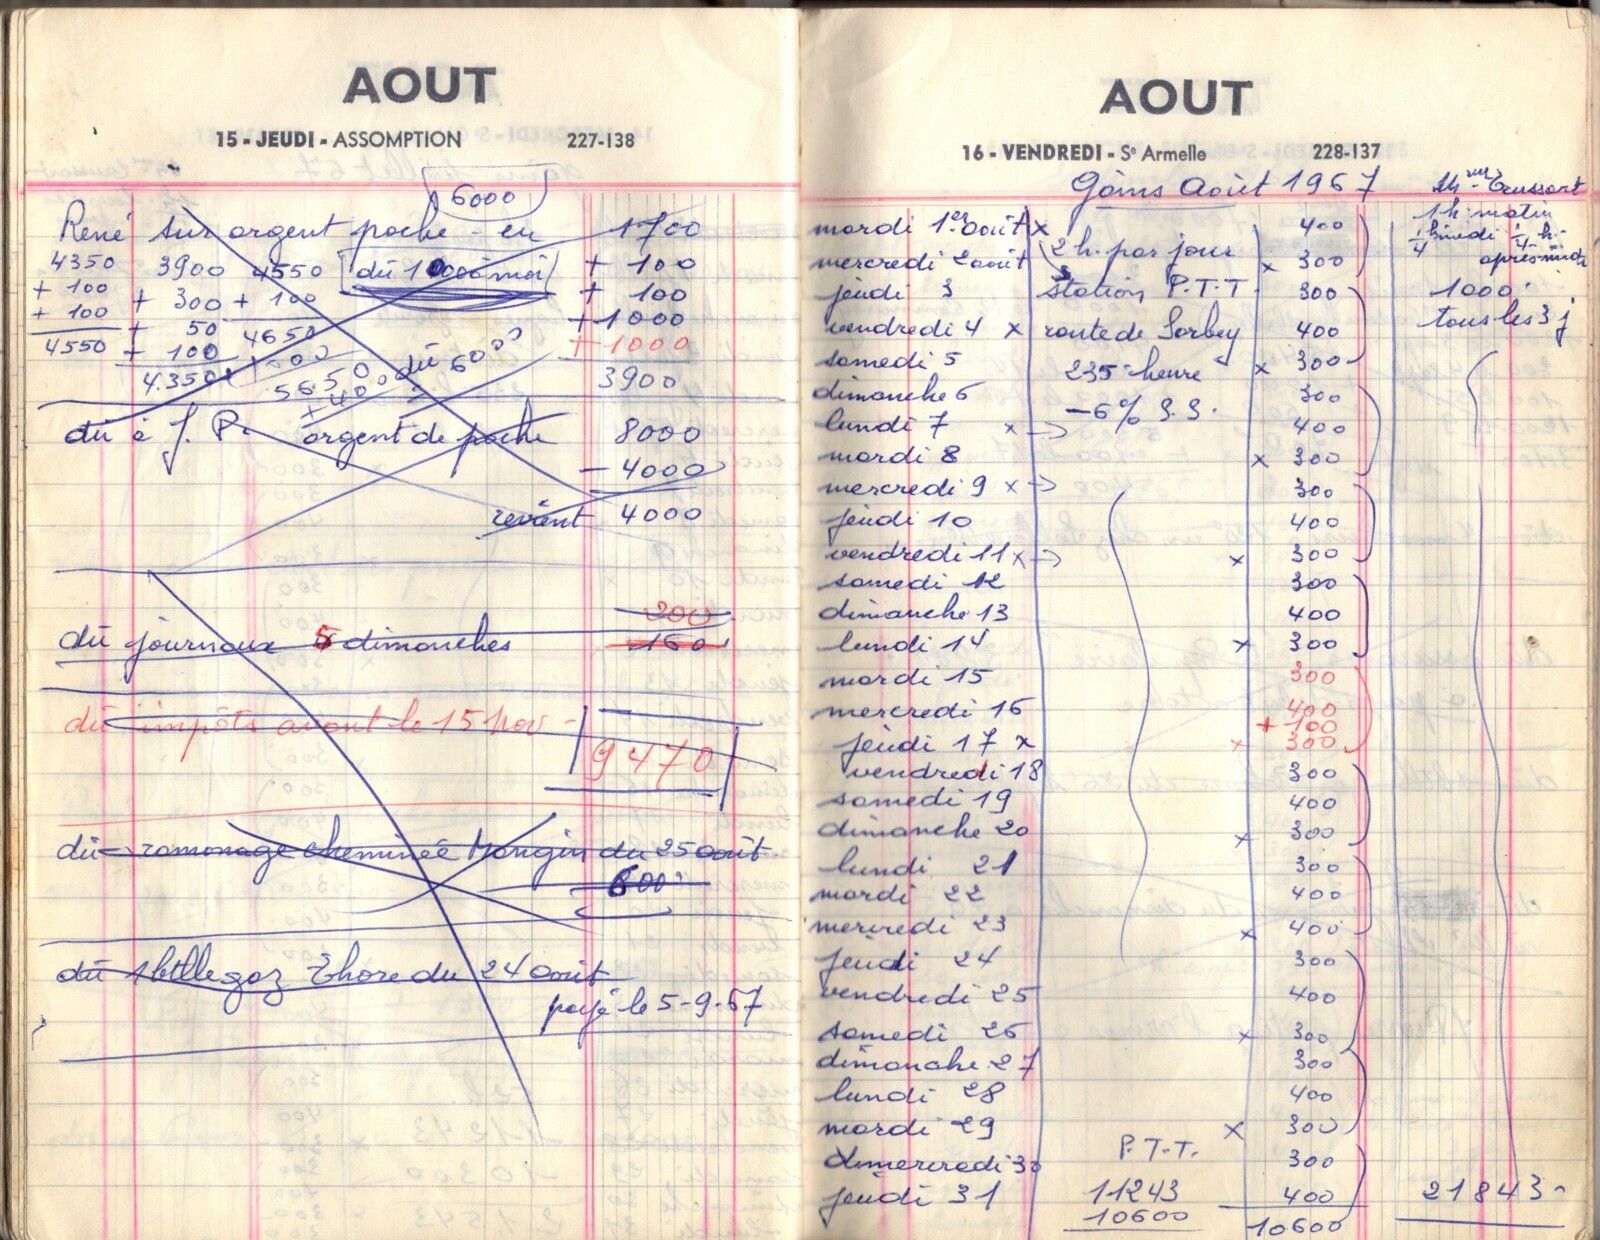 AOUT
15 - JEUDI - ASSOMPTION 227-138
6000
René sur argent poche - en 1700
4350 3900 4550 dû 1000 à moi + 100
+ 100 + 300 + 100 + 100
+ 100 + 50 4650 + 1000
4550 + 100 dû 6000 + 1000
4.350 5650 3900
+ 400
dû à J. P. argent de poche 8000
- 4000
revient 4000
200
dû journaux 5 dimanches 160
dû impôts avant le 15 Nov - 9470
dû ramonage cheminée Mangin du 25 août.
600
dû 1 btlle gaz Thore du 24 août
payé le 5-9-67
AOUT
16 - VENDREDI - Se Armelle 228-137
Gains Août 1967
mardi 1er août x 400 1 h. matin
mercredi 2 août 2 h. par jour x 300 1/4 h midi 1/4 h. après midi
jeudi 3 station P.T.T. 300 1000
vendredi 4 x route de Sorbey 400 tous les 3 j
samedi 5 235 - heure x 300
dimanche 6 - 6% S.S. 300
lundi 7 x → 400
mardi 8 x 300
mercredi 9 x → 300
jeudi 10 400
vendredi 11 x → x 300
samedi 12 300
dimanche 13 400
lundi 14 x 300
mardi 15 300
mercredi 16 400
+ 100
jeudi 17 x x 300
vendredi 18 300
samedi 19 400
dimanche 20 x 300
lundi 21 300
mardi 22 400
mercredi 23 x 400
jeudi 24 300
vendredi 25 400
samedi 26 x 300
dimanche 27 300
lundi 28 400
mardi 29 x 300
mercredi 30 P.T.T. 300
jeudi 31 11243 400 21843 -
10600 10600